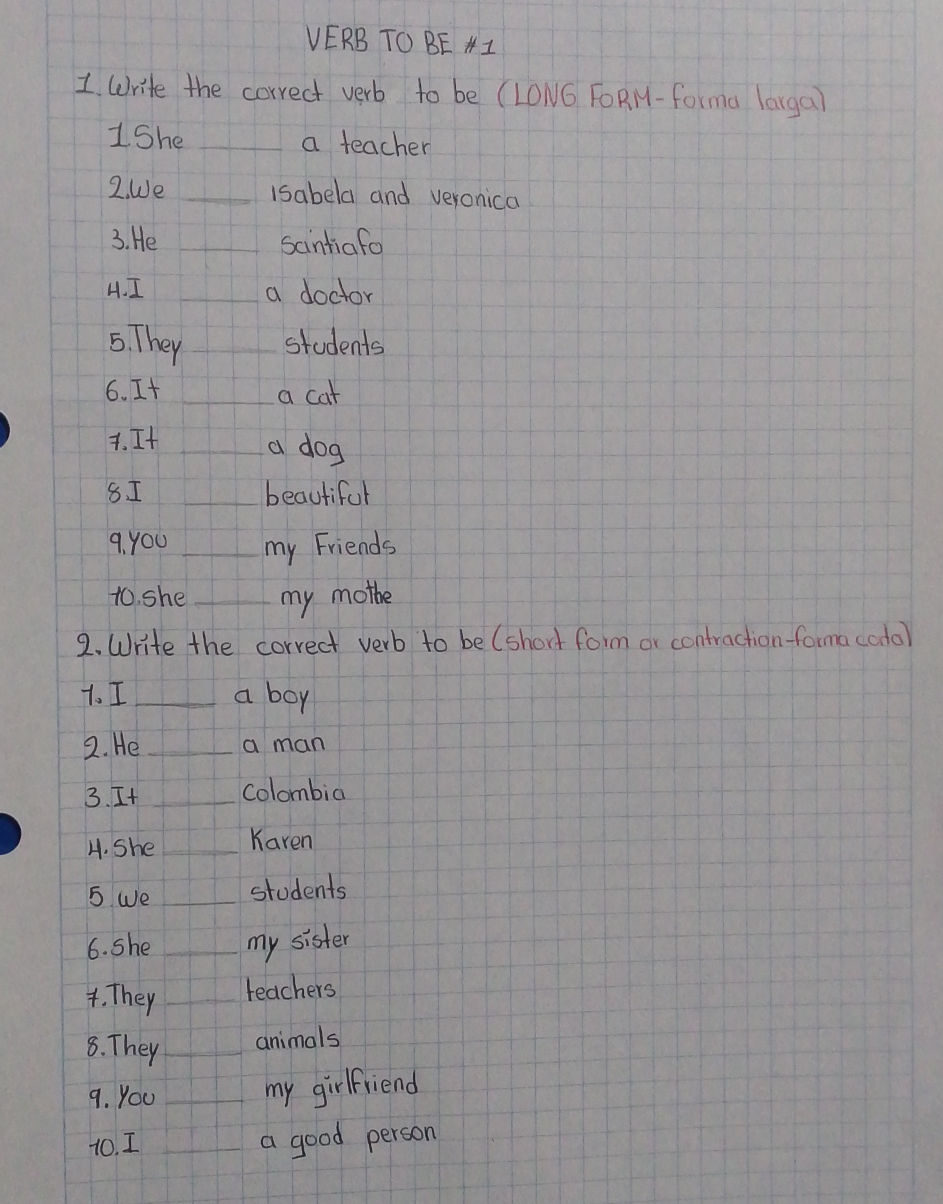 VERB TO BE #1
1. Write the correct verb to be (LONG FORM-forma larga)
1. She ____ a teacher
2. We ____ isabela and veronica
3. He ____ saintiafo
4. I ____ a doctor
5. They ____ students
6. It ____ a cat
7. It ____ a dog
8. I ____ beautiful
9. you ____ my Friends
10. she ____ my mothe
2. Write the correct verb to be (short form or contraction-forma cota)
1. I ____ a boy
2. He ____ a man
3. It ____ colombia
4. She ____ Karen
5 we ____ students
6. She ____ my sister
7. They ____ teachers
8. They ____ animals
9. You ____ my girlfriend
10. I ____ a good person